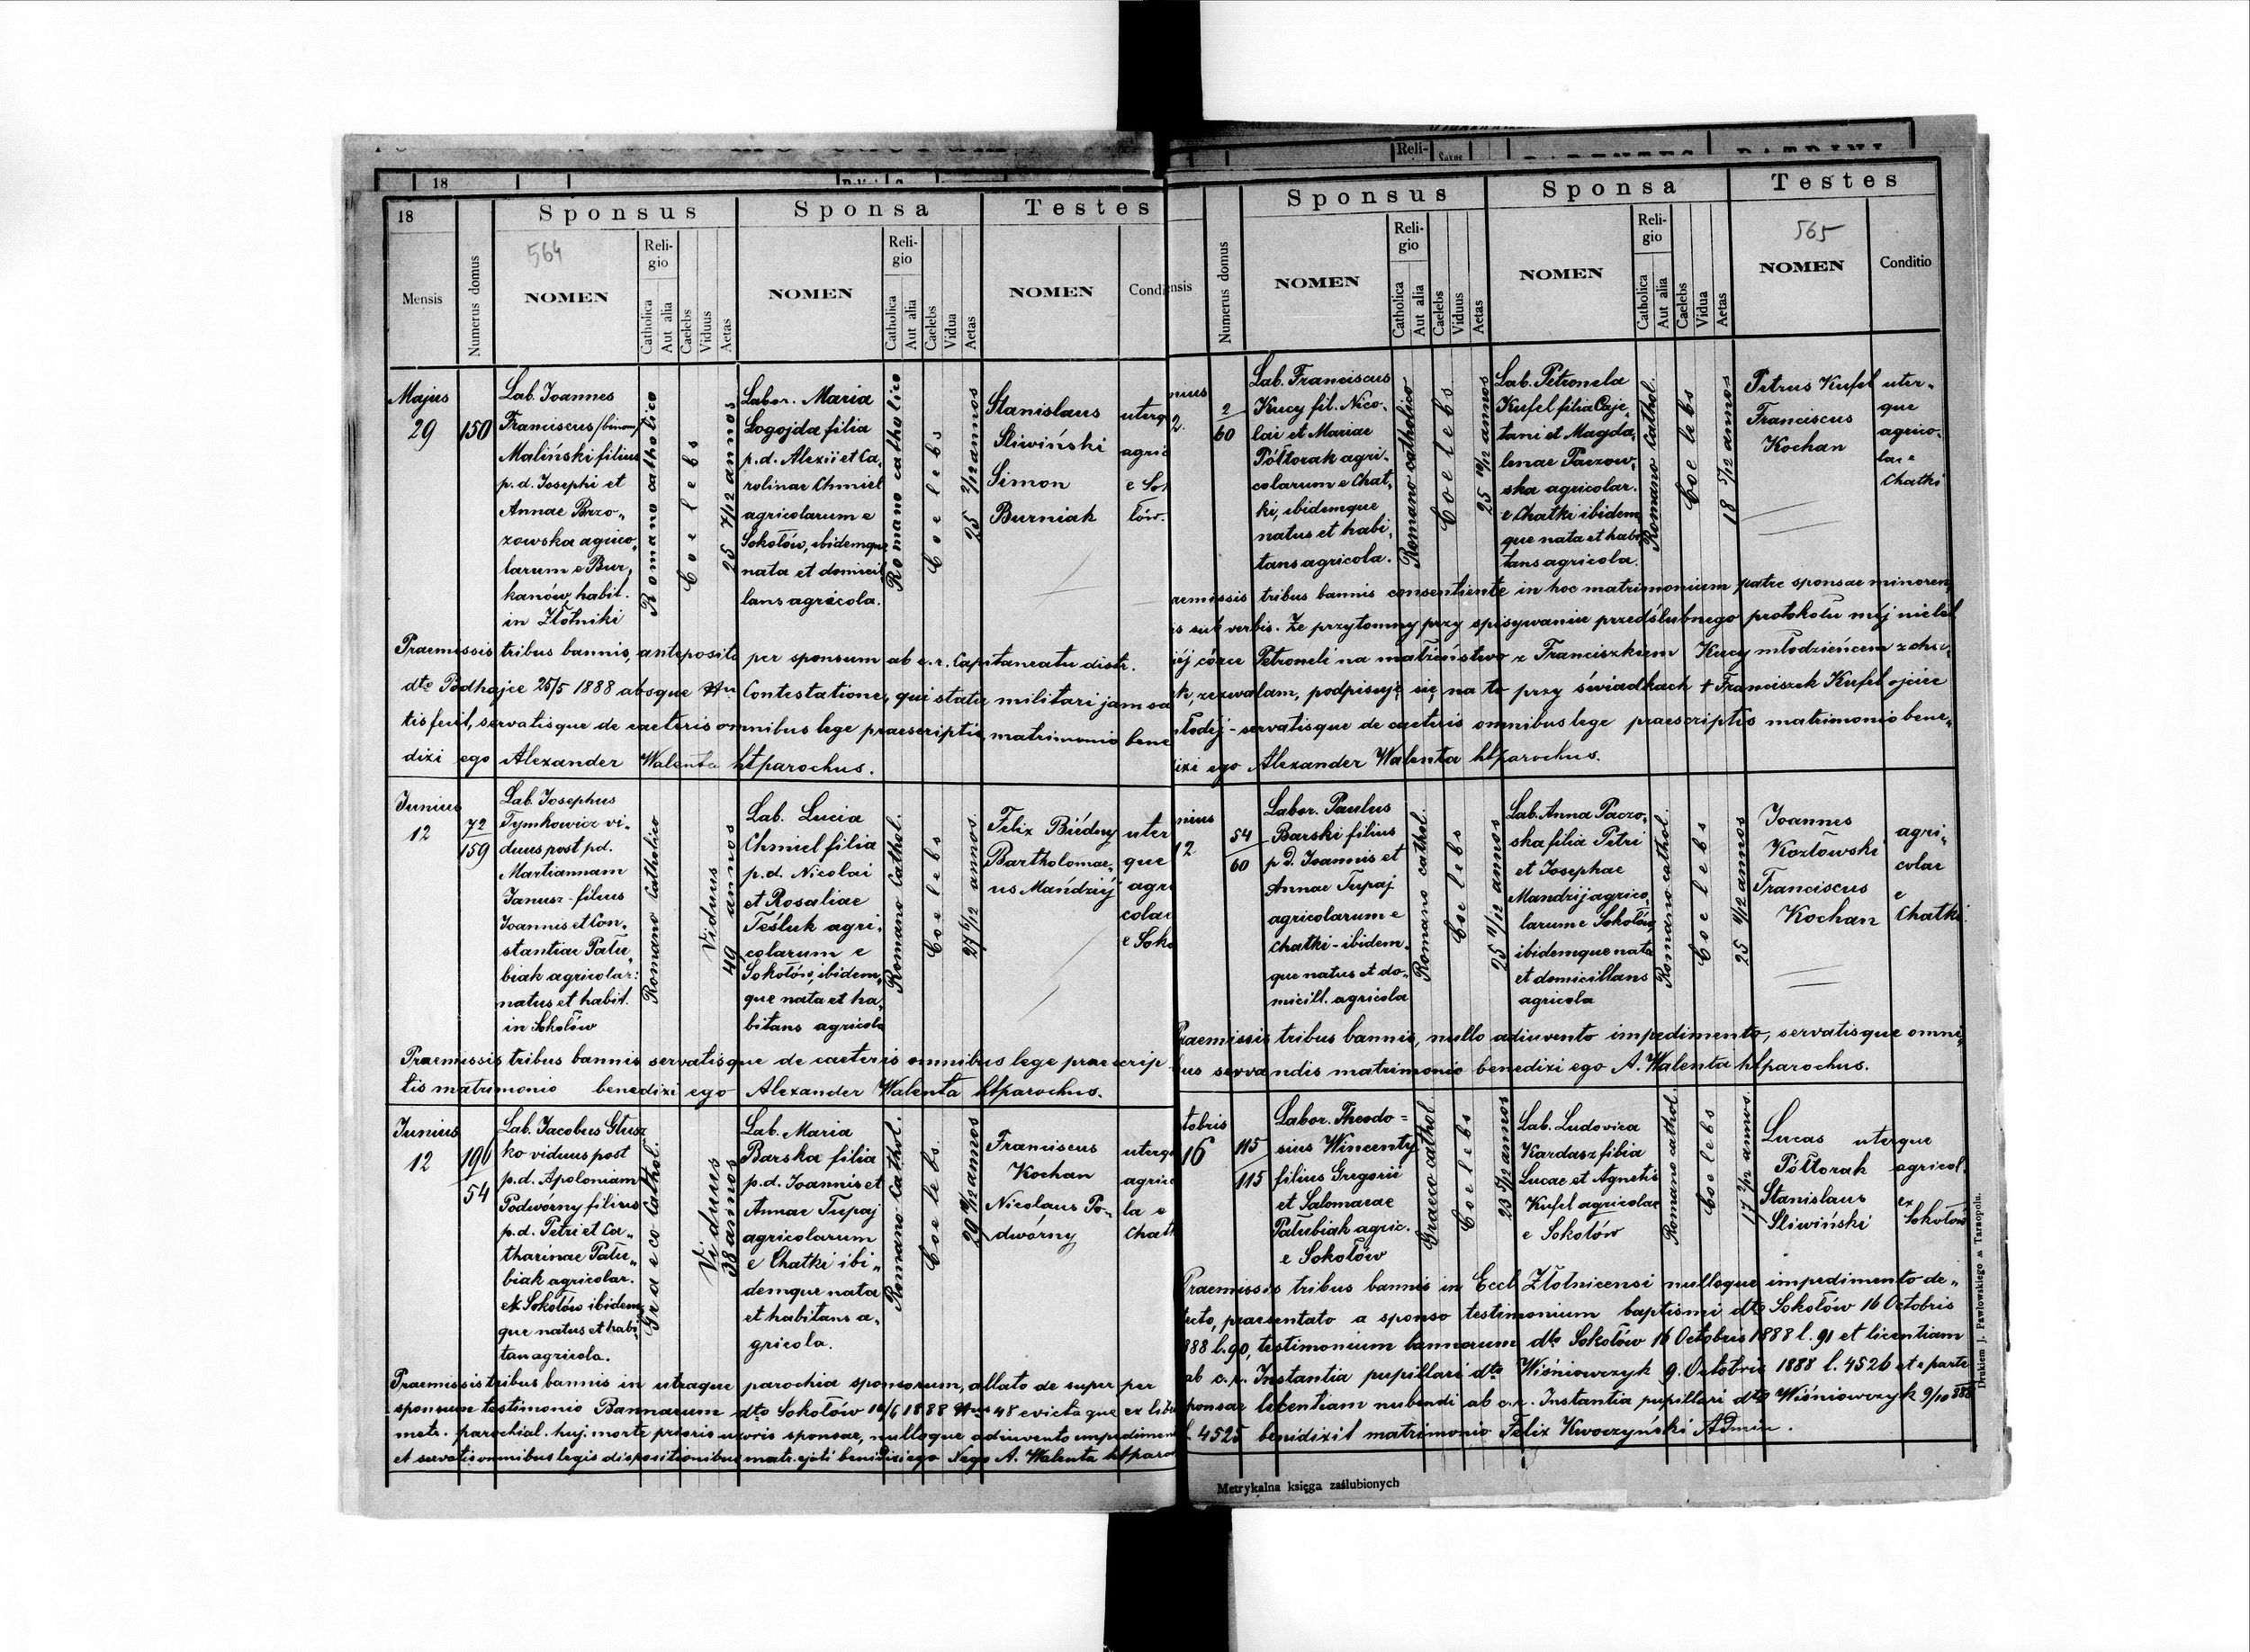 18
18
Sponsus
Sponsa
Testes
564
Mensis
Numerus domus
NOMEN
Reli-
gio
Catholica
Aut alia
Caelebs
Viduus
Aetas
NOMEN
Reli-
gio
Catholica
Aut alia
Caelebs
Vidua
Aetas
NOMEN
Condi
Majus
29
150
Lab. Joannes
Franciscus /binom/
Maliński filius
p.d. Josephi et
Annae Brzo„
zowska agrico„
larum e Bur„
kanów habit.
in Złotniki
Romano catholico
Coelebs
25 7/12 annos
Labor. Maria
Łogojda filia
p.d. Alexii et Ca„
rolinae Chmiel
agricolarum e
Sokołów, ibidemque
nata et domicil
lans agricola.
Romano catholico
Coelebs
25 2/12 annos
Stanislaus
Sliwiński
Simon
Burniak
uterq
agric
e So
łów.
Praemissis tribus bannis, anteposito per sponsum ab c.r. Capitaneatu distr.
dto Podhajce 25/5 1888 absque Contestatione, qui statu militari jam sa
tisfecit, servatisque de caeteris omnibus lege praescriptis, matrimonio bene
dixi ego Alexander Walenta htparochus.
Junius
12
72
159
Lab. Josephus
Tymkowicz vi„
duus post pd.
Martiannam
Janusz - filius
Joannis et Con„
stantiae Pału„
biak agricolar:
natus et habit.
in Sokołów
Romano Catholico
Viduus
49 annos
Lab. Lucia
Chmiel filia
p.d. Nicolai
et Rosaliae
Teśluk agri„
colarum e
Sokołów, ibidem„
que nata et ha„
bitans agricola
Romano Cathol.
Coelebs
27 6/12 annos.
Felix Biédny
Bartholomae„
us Mańdzij
uter
que
agri
colae
e Soko
Praemissis tribus bannis servatisque de caeteris omnibus lege praescrip
tis matrimonio benedixi ego Alexander Walenta htparochus.
Junius
12
196
54
Lab. Jacobus Głusz
ko viduus post
p.d. Apoloniam
Podwórny filius
p.d. Petri et Ca„
tharinae Pału„
biak agricolar.
ex Sokołów ibidem
que natus et habi„
tan agricola.
Graeco Cathol.
Viduus
38 annos
Lab. Maria
Barska filia
p.d. Joannis et
Annae Tupaj
agricolarum
e Chatki ibi„
demque nata
et habitans a„
gricola.
Romano-Cathol.
Coelebs.
Franciscus
Kochan
Nicolaus Po„
dwórny
uterq
agrico
la e
Chatk
Praemissis tribus bannis in utraque parochia sponsorum, allato de super per
sponsum testimonio Bannorum dto Sokołów 10/6 1888 48 evictaque ex libr
metr. parochial. huj. morte prioris uxoris sponsae, nulloque adinvento impedimen
et servatis omnibus legis dispositionibus A. Walenta htparo
Reli-
Sponsus
Sponsa
Testes
565
ensis
Numerus domus
NOMEN
Reli-
gio
Catholica
Aut alia
Caelebs
Viduus
Aetas
NOMEN
Reli-
gio
Catholica
Aut alia
Caelebs
Vidua
Aetas
NOMEN
Conditio
nius
2.
2
60
Lab. Franciscus
Kucy fil. Nico„
lai et Mariae
Półtorak agri„
colarum e Chat„
ki, ibidemque
natus et habi„
tans agricola.
Romano catholico
Coelebs
25 10/12 annos
Lab. Petronela
Kufel filia Caje„
tani et Magda„
lenae Paczow„
ska agricolar.
e Chatki ibidem
que nata et habi
tans agricola.
Romano Cathol.
Coelebs
18 5/12 annos
Petrus Kufel
Franciscus
Kochan
uter„
que
agrico„
lae e
Chatki
aemissis tribus bannis consentiente in hoc matrimonium patre sponsae minoren„
is sub verbis. Że przytomny przy spisywaniu przedślubnego protokołu mej nielet
iéj córce Petroneli na małżeństwo z Franciszkiem Kucy młodzieńcem z cha„
k, zezwalam, podpisuję się na to przy świadkach + Franciszek Kufel ojciec
młodéj - servatisque de caeteris omnibus lege praescriptis matrimonio bene„
ixi ego Alexander Walenta htparochus.
nius
12
54
60
Labor. Paulus
Barski filius
p d. Joannis et
Annae Tupaj
agricolarum e
Chatki - ibidem„
que natus et do„
micill. agricola
Romano cathol.
Coelebs
25 11/12 annos
Lab. Anna Paczo„
ska filia Petri
et Josephae
Mandzij agrico„
larum e Sokołów
ibidemque nata
et domicillans
agricola
Romano cathol.
Coelebs
Joannes
Kozłowski
Franciscus
Kochan
agri„
colae
e
Chatki.
Praemissis tribus bannis, nullo adinvento impedimento, servatisque omni„
bus servandis matrimonio benedixi ego A. Walenta htparochus.
tobris
16
115
115
Labor. Theodo=
sius Wincenty
filius Gregorii
et Salomeae
Pałubiak agric.
e Sokołów
Graeco cathol.
Coelebs
23 5/12 annos
Lab. Ludovica
Kardasz filia
Lucae et Agnetis
Kufel agricolae
e Sokołów
Romano cathol.
Coelebs
17 2/12 annos.
Lucas
Półtorak
Stanislaus
Sliwiński
uterque
agricol.
ex
Sokołów
Praemissis tribus bannis in Eccl. Złotnicensi nulloque impedimento de„
tecto, praesentato a sponso testimonium baptismi dto Sokołów 16 Octobris
888 l. 90, testimonium bannorum dto Sokołów 16 Octobris 1888 l. 91 et licentiam
ab c.r. Instantia pupillari dto Wiśniowczyk 9. Octobris 1888 l. 4526 et e parte
sponsae licentiam nubendi ab c.r. Instantia pupillari dto Wiśniowczyk 9/10 888
l. 4525 benidixit matrimonio Felix Kwoczyński Admin.
Metrykalna księga zaślubionych
Drukiem J. Pawłowskiego w Tarnopolu.